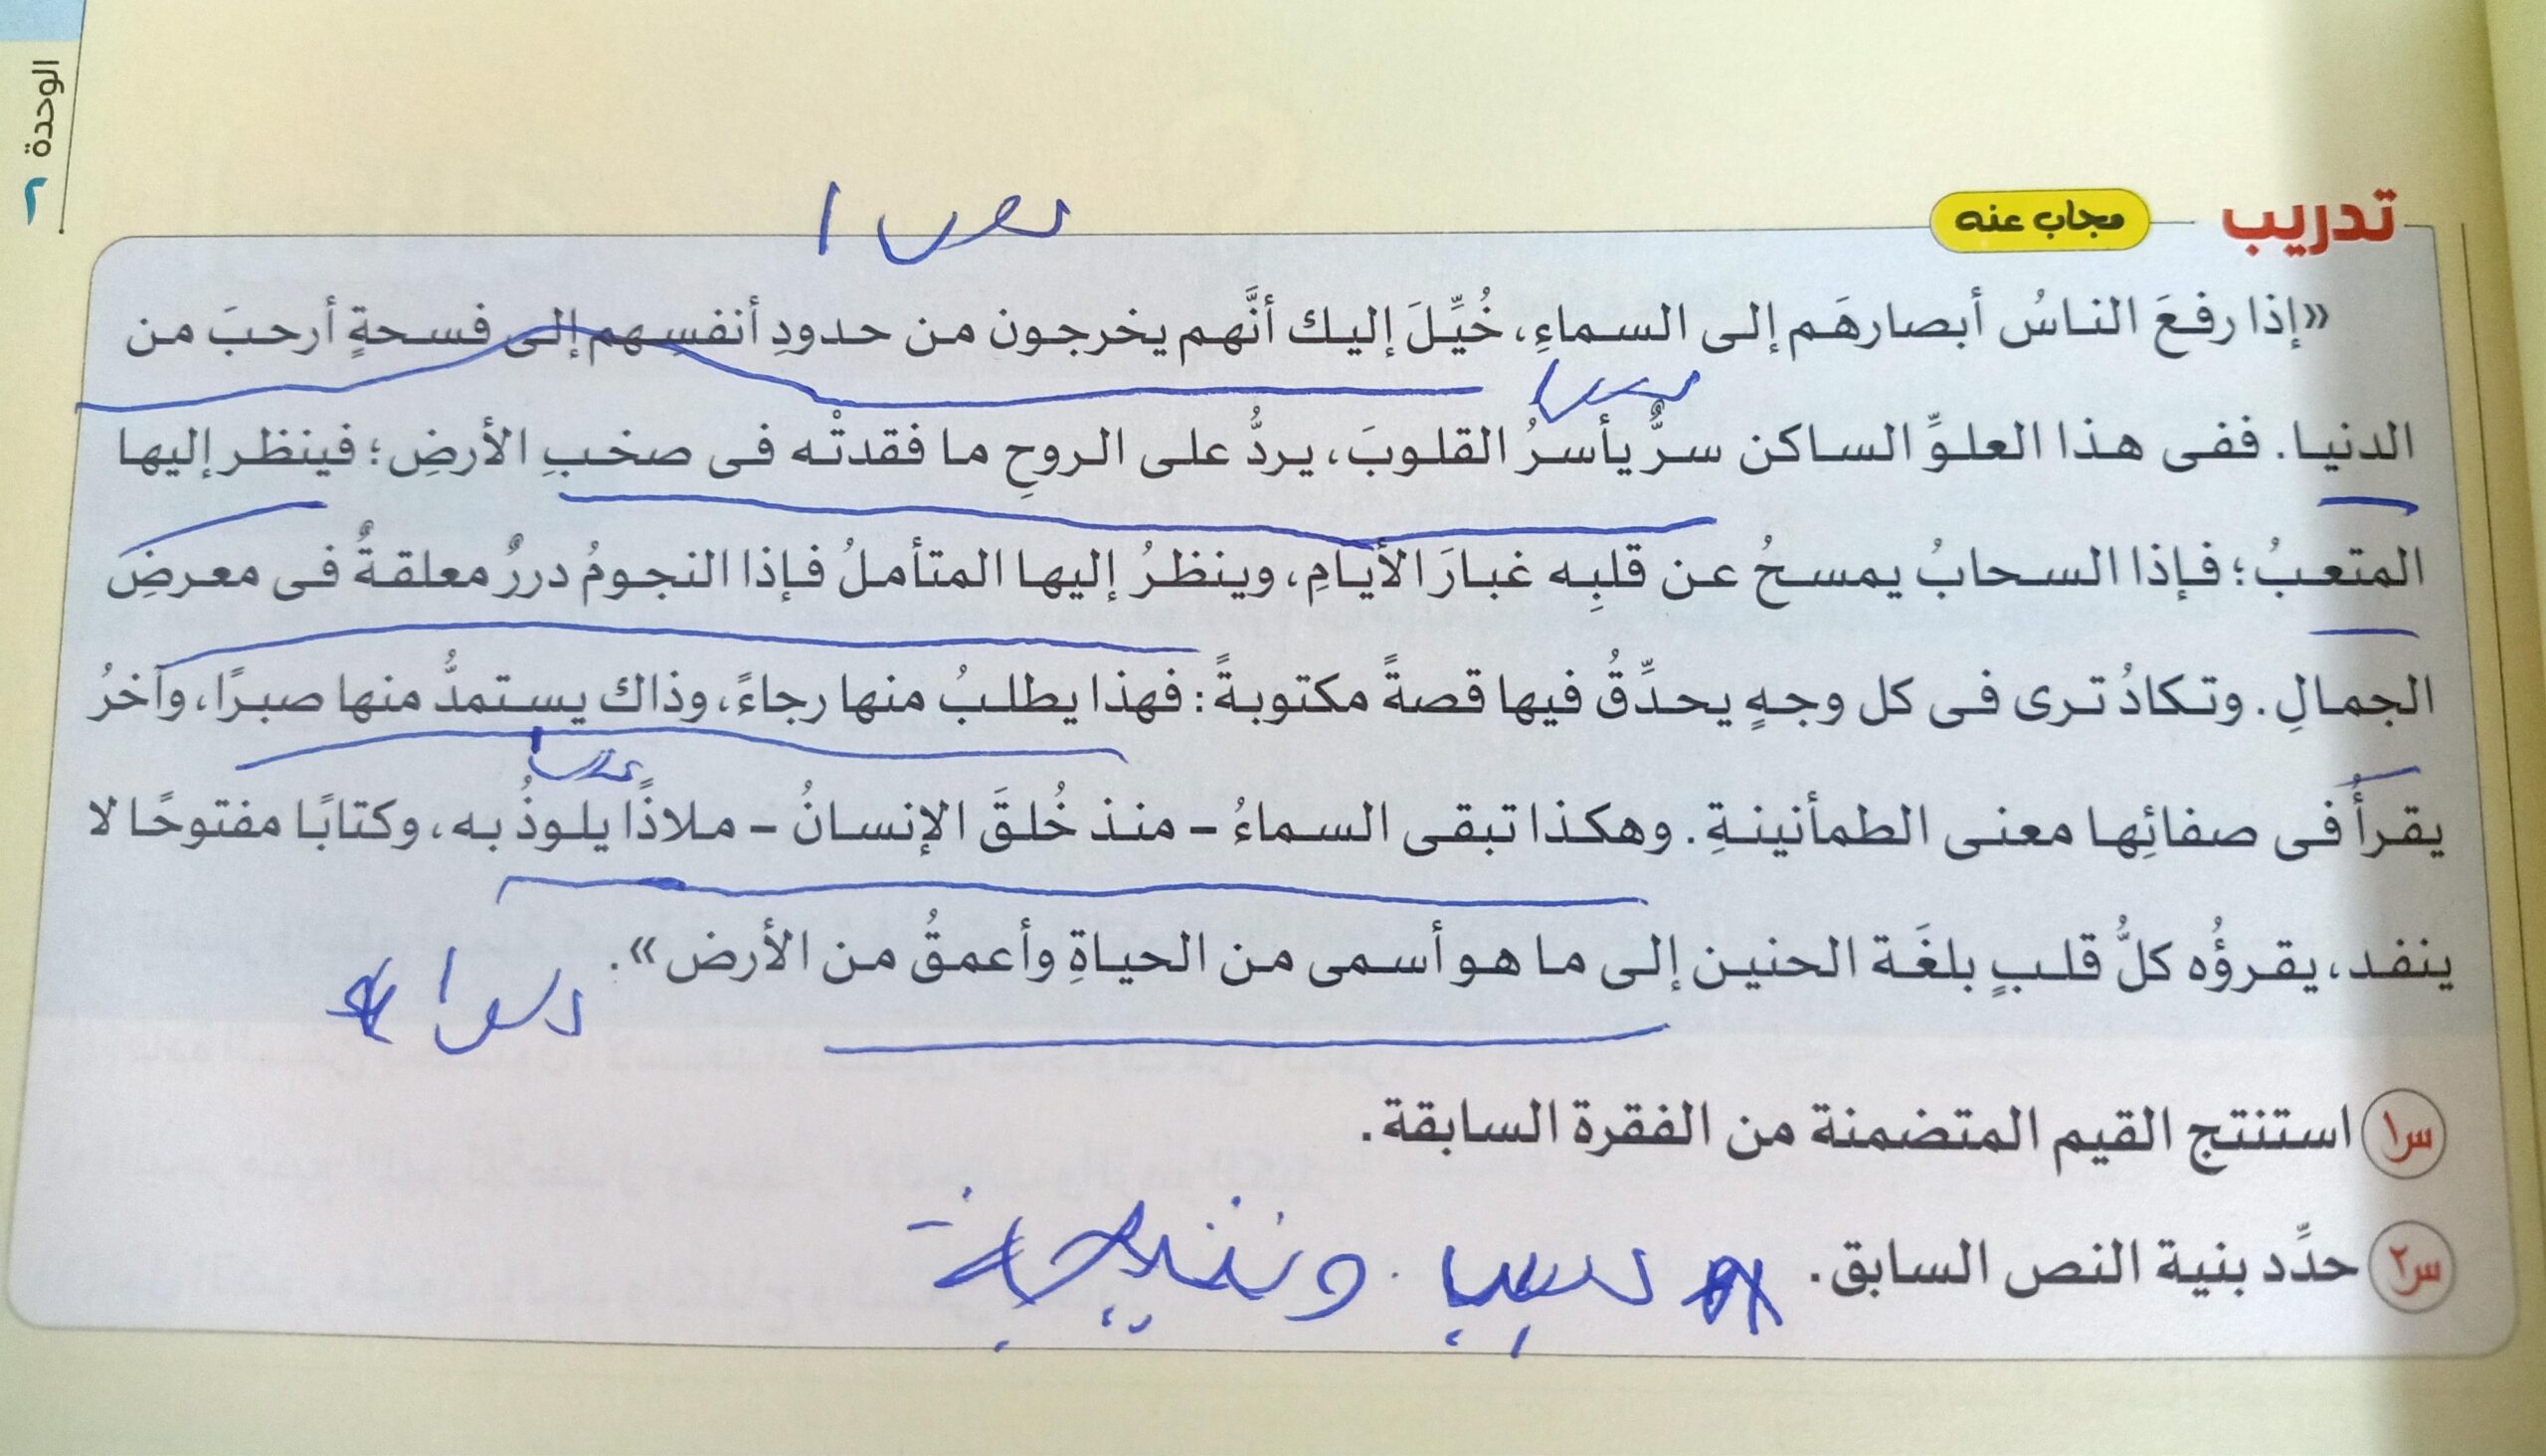 الوحدة ٢
تدريب
مجاب عنه
نص ١
«إذا رفعَ الناسُ أبصارهَم إلى السماءِ، خُيِّلَ إليك أنَّهم يخرجون من حدودِ أنفسِهم إلى فسحةٍ أرحبَ من
الدنيا. ففى هذا العلوِّ الساكن سرٌّ يأسرُ القلوبَ، يردُّ على الروحِ ما فقدتْه فى صخبِ الأرضِ؛ فينظر إليها
المتعبُ؛ فإذا السحابُ يمسحُ عن قلبِه غبارَ الأيامِ، وينظرُ إليها المتأملُ فإذا النجومُ دررٌ معلقةٌ فى معرضِ
الجمالِ. وتكادُ ترى فى كل وجهٍ يحدِّقُ فيها قصةً مكتوبةً: فهذا يطلبُ منها رجاءً، وذاك يستمدُّ منها صبرًا، وآخرُ
يقرأُ فى صفائِها معنى الطمأنينةِ. وهكذا تبقى السماءُ - منذ خُلقَ الإنسانُ - ملاذًا يلوذُ به، وكتابًا مفتوحًا لا
ينفد، يقرؤُه كلُّ قلبٍ بلغَة الحنين إلى ما هو أسمى من الحياةِ وأعمقُ من الأرض».
س١ استنتج القيم المتضمنة من الفقرة السابقة.
س٢ حدِّد بنية النص السابق.
سبب ونتيجة